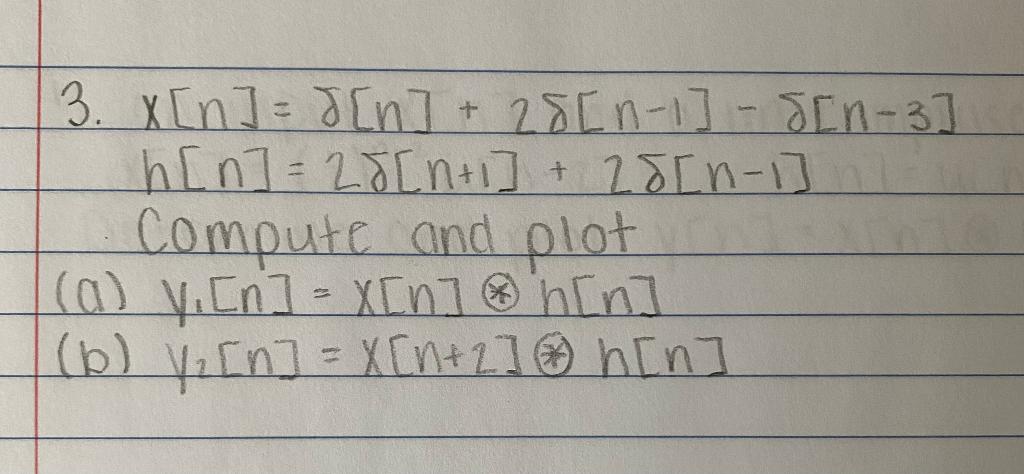 3. x[n] = δ[n] + 2δ[n-1] - δ[n-3]
h[n] = 2δ[n+1] + 2δ[n-1]
Compute and plot
(a) y₁[n] = x[n] ⊛ h[n]
(b) y₂[n] = x[n+2] ⊛ h[n]